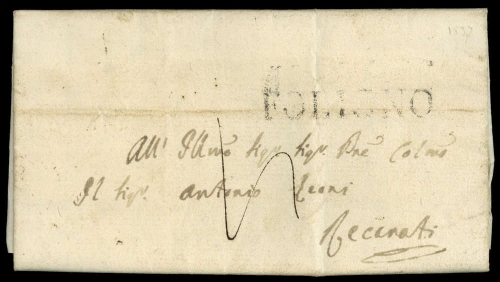 FOLIGNO
All' Illmo Sigr Sigr Pne Colmo
Il Sigr Antonio Leoni
Recanati